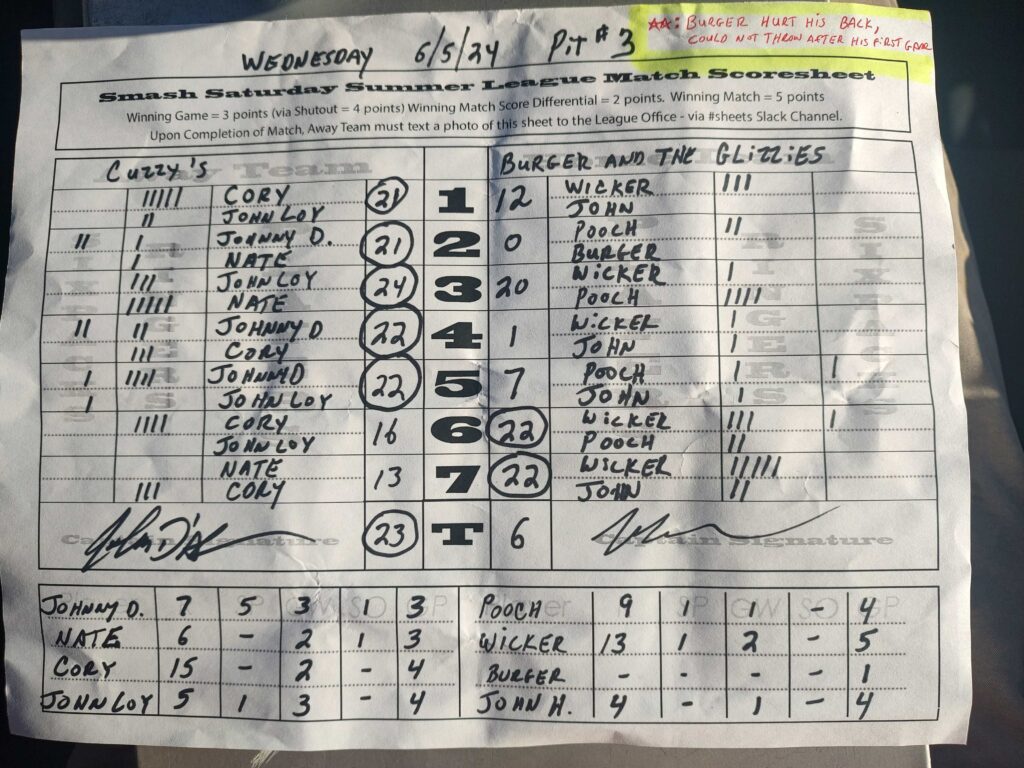 WEDNESDAY 6/5/24 PIT #3
AA: BURGER HURT HIS BACK,
COULD NOT THROW AFTER HIS FIRST GAME
Smash Saturday Summer League Match Scoresheet
Winning Game = 3 points (via Shutout = 4 points) Winning Match Score Differential = 2 points. Winning Match = 5 points
Upon Completion of Match, Away Team must text a photo of this sheet to the League Office - via #sheets Slack Channel.
CUZZY'S BURGER AND THE GLIZZIES
||||| CORY 21 1 12 WICKER |||
|| JOHN LOY JOHN
|| | JOHNNY D. 21 2 0 POOCH ||
| NATE BURGER
||| JOHN LOY 24 3 20 WICKER |
||||| NATE POOCH ||||
|| || JOHNNY D 22 4 1 WICKER |
||| CORY JOHN |
| |||| JOHNNY D 22 5 7 POOCH | |
| JOHN LOY JOHN |
|||| CORY 16 6 22 WICKER ||| |
JOHN LOY POOCH ||
NATE 13 7 22 WICKER |||||
||| CORY JOHN ||
23 T 6
Captain Signature Captain Signature
JOHNNY D. 7 5 3 1 3 POOCH 9 1 1 - 4
NATE 6 - 2 1 3 WICKER 13 1 2 - 5
CORY 15 - 2 - 4 BURGER - - - - 1
JOHN LOY 5 1 3 - 4 JOHN H. 4 - 1 - 4